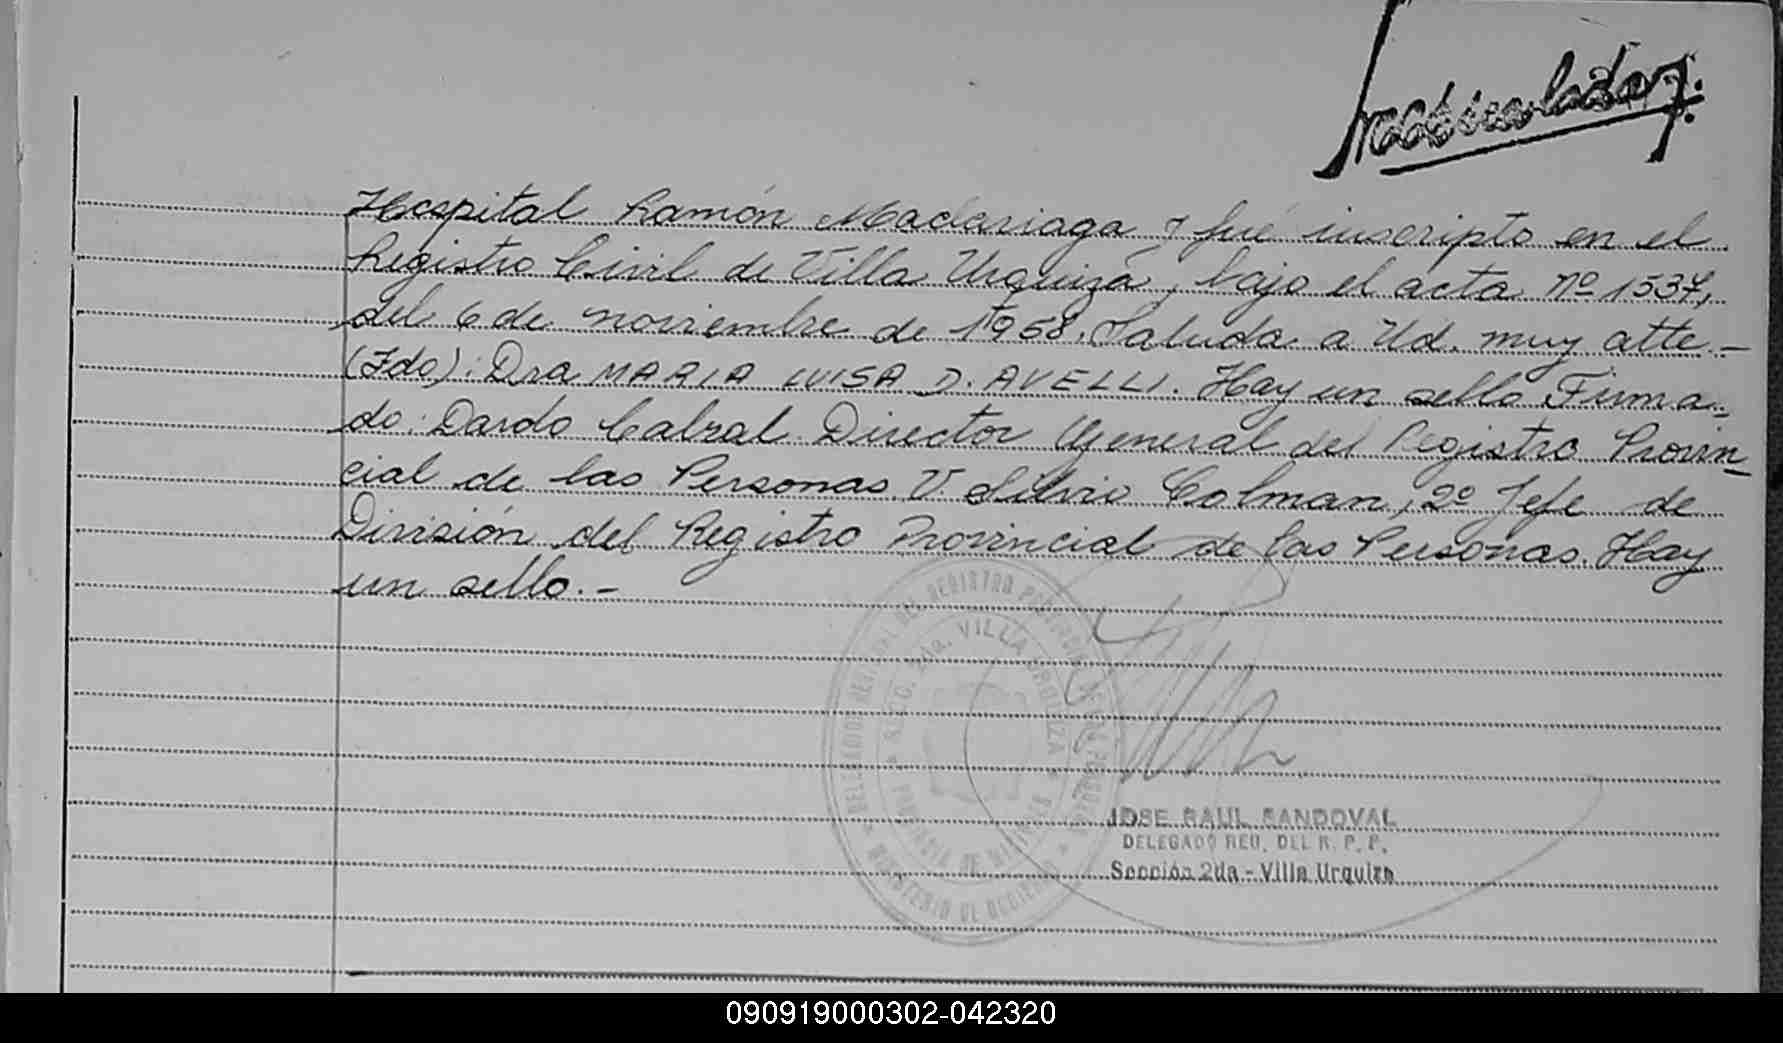 Matriculado
Hospital Ramón Madariaga y fué inscripto en el
Registro Civil de Villa Urquiza, bajo el acta nº 1537,
del 6 de noviembre de 1958. Saluda a Ud. muy atte.-
(Fdo): Dra MARIA LUISA D. AVELLI. Hay un sello Firma-
do: Dardo Cabral Director General del Registro Provin-
cial de las Personas. V. Silvio Colman, 2º Jefe de
División del Registro Provincial de las Personas. Hay
un sello.-
SECC. 2da. VILLA URQUIZA
PROVINCIA DE MISIONES
JOSE RAUL SANDOVAL
DELEGADO REG. DEL R. P. P.
Sección 2da - Villa Urquiza
090919000302-042320